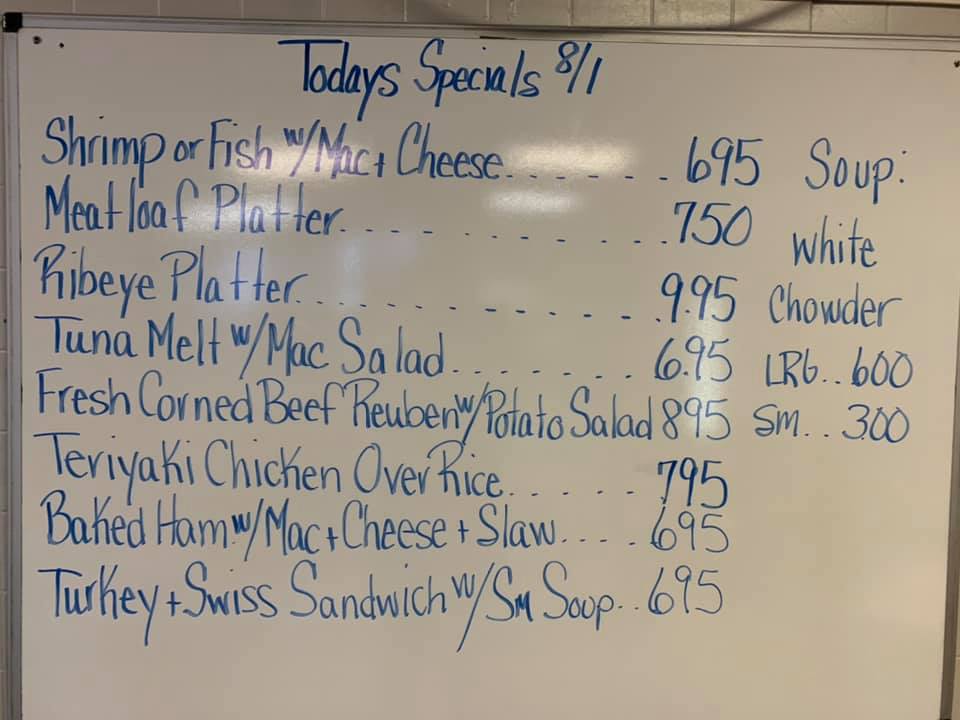 Todays Specials 8/1
Shrimp or Fish w/Mac + Cheese....... 695
Meatloaf Platter............ 750
Ribeye Platter............. 9.95
Tuna Melt w/Mac Salad........ 6.95
Fresh Corned Beef Reuben w/Potato Salad 895
Teriyaki Chicken Over Rice...... 795
Baked Ham w/Mac + Cheese + Slaw..... 695
Turkey + Swiss Sandwich w/Sm Soup.. 695
Soup:
White
Chowder
LRG.. 600
Sm... 300